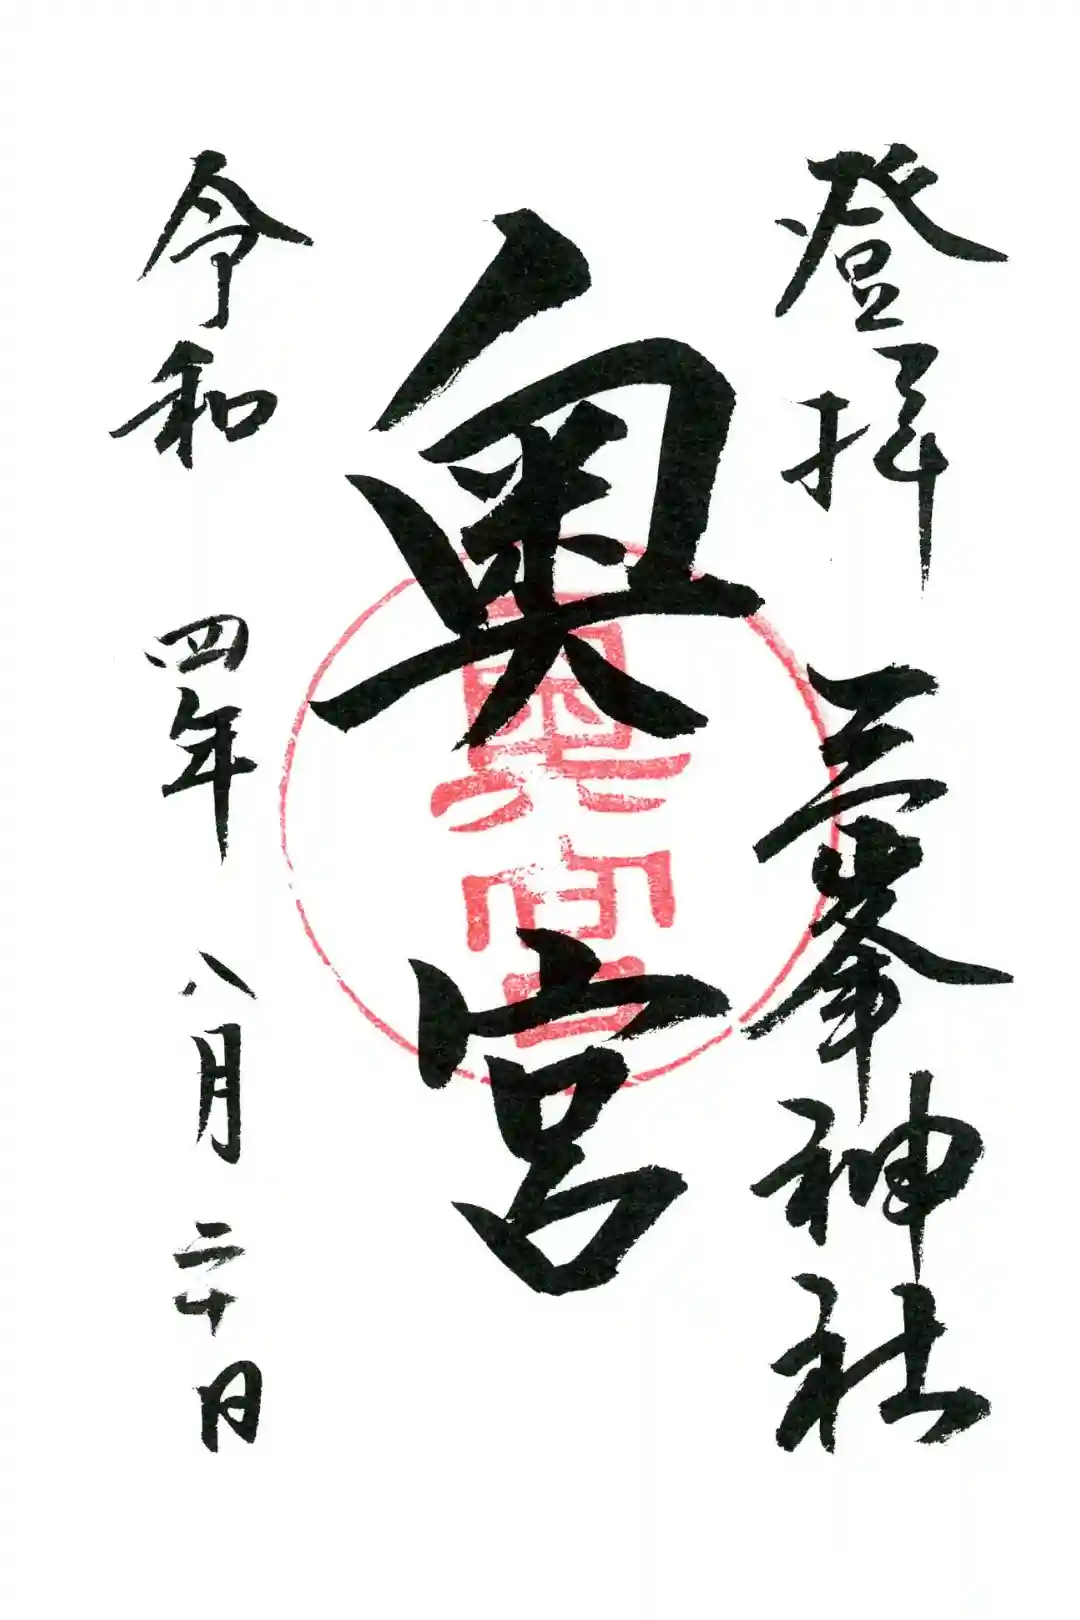 登拝 三峯神社
奥宮
奥宮
令和四年八月二十日